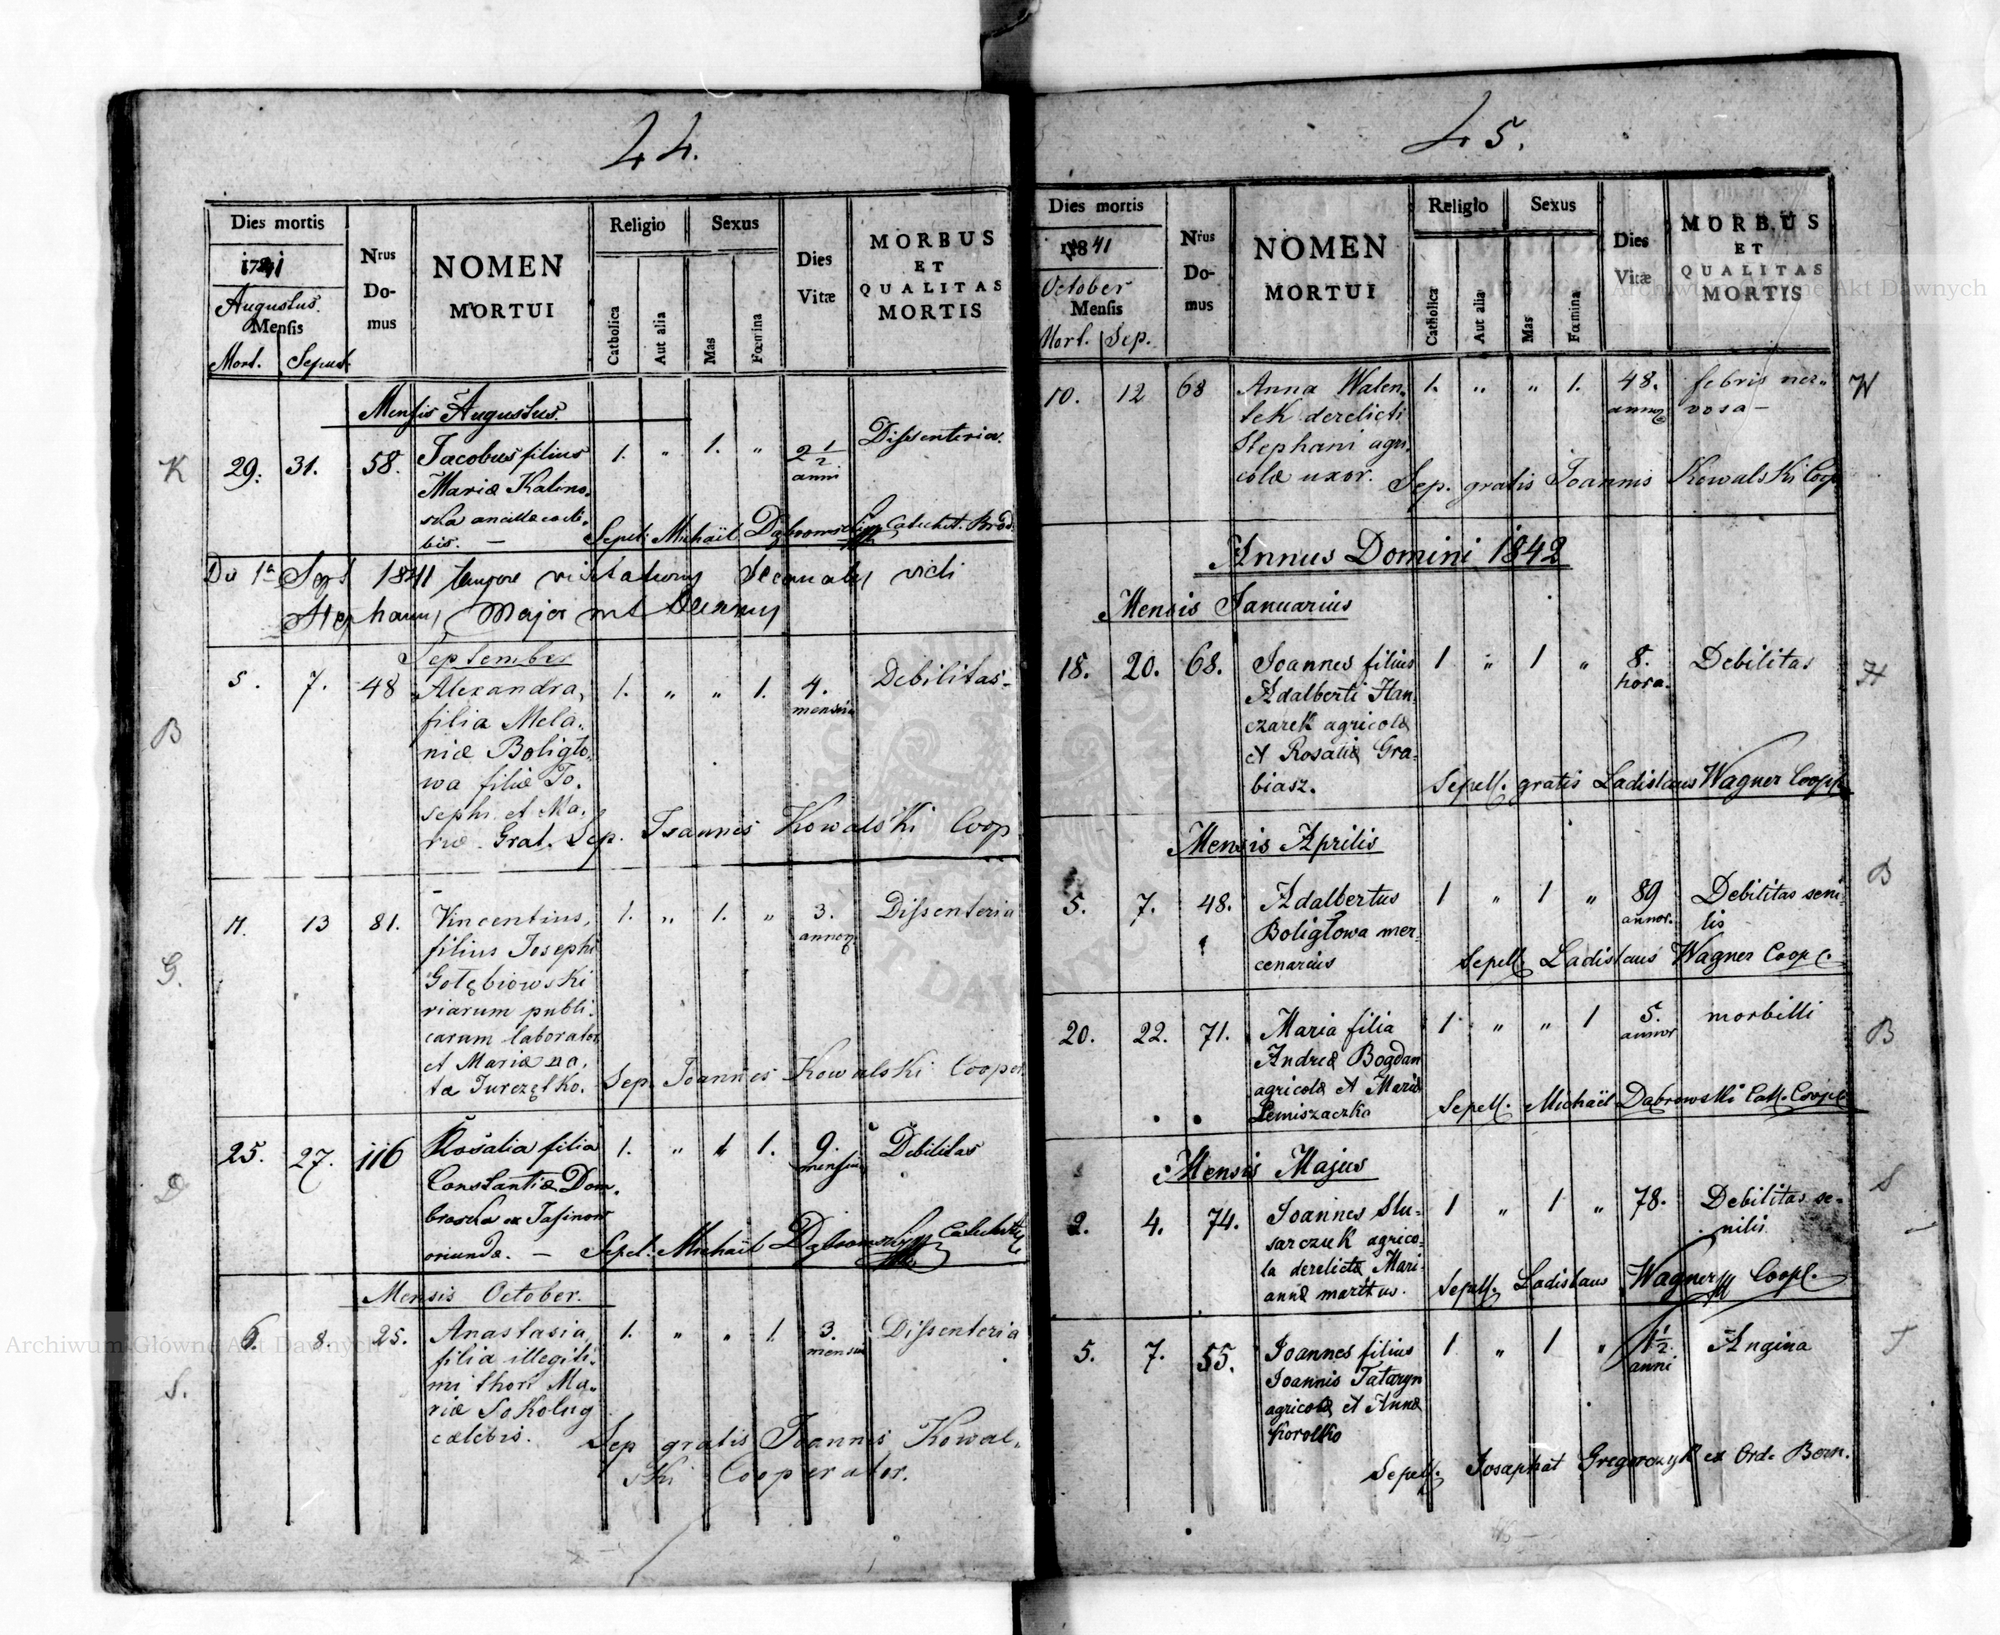 44.
Dies mortis
1841
Augustus.
Mensis
Mort. Sepult.
Nrus
Do-
mus
NOMEN
MORTUI
Religio
Catholica
Aut alia
Sexus
Mas
Fœmina
Dies
Vitæ
MORBUS
ET
QUALITAS
MORTIS
Mensis Augustus.
K
29. 31. 58. Jacobus filius 1. " 1. " 2 1/2 Dissenteria.
Mariæ Kalino- anni
ska ancillæ cœli-
bis. — Sepel: Michaël Dąbrowski Catechet. Brod.
Die 1a Sept 1841 tempore visitationis decanalis vidi
Stephanus Major mt Decanus
September
B
5. 7. 48 Alexandra, 1. " " 1. 4. Debilitas-
filia Mela- mensium
niæ Boligło-
wa filiæ Jo-
sephi et Ma-
riæ. Grat. Sep. Joannes Kowalski Coop
G.
11. 13 81. Vincentius, 1. " 1. " 3. Dissenteria
filius Josephi annor.
Gołębiowski
viarum publi-
carum laborator
et Mariæ na-
ta Jurczętko. Sep. Joannes Kowalski Cooper.
D
25. 27. 116 Rosalia filia 1. " " 1. 9. Debilitas
Constantiæ Dom- mensium
browska ex Jasinow
oriunda. — Sepel: Michaël Dąbrowski Catecheta
Mensis October.
S.
6. 8. 25. Anastasia, 1. " " 1. 3. Dissenteria
filia illegiti- mensium
mi thori Ma-
riæ Sokolug
cælebis.
Sep gratis Joannes Kowal-
ski Cooperator.
45.
Dies mortis
1841
October
Mensis
Mort. Sep.
Nrus
Do-
mus
NOMEN
MORTUI
Religio
Catholica
Aut alia
Sexus
Mas
Fœmina
Dies
Vitæ
MORBUS
ET
QUALITAS
MORTIS
10. 12 68 Anna Walen- 1. " " 1. 48. febris ner- W
tek derelicti annor. vosa —
Stephani agri-
colæ uxor. Sep. gratis Joannis Kowalski Coop
Annus Domini 1842
Mensis Januarius
18. 20. 68. Joannes filius 1 " 1 " 8. Debilitas H
Adalberti Han- hora.
czarek agricolæ
et Rosaliæ Gra-
biasz. Sepell. gratis Ladislaus Wagner Coopl.
Mensis Aprilis
5. 7. 48. Adalbertus 1 " 1 " 89 Debilitas seni- B
Boligłowa mer- annor. lis
cenarius Sepell. Ladislaus Wagner Coopl.
20. 22. 71. Maria filia 1 " " 1 5. morbilli B
Andreæ Bogdan annor
agricolæ et Mariæ
Lemiszaczka Sepell. Michaël Dąbrowski Cat. Coopl
Mensis Majus
2. 4. 74. Joannes Slu- 1 " 1 " 78. Debilitas se- S
sarczuk agrico- nilis
la derelictæ Mari-
annæ maritus. Sepell. Ladislaus Wagner Coopl.
5. 7. 55. Joannes filius 1 " 1 " 1 1/2 Angina T
Joannis Tataryn anni
agricolæ et Annæ
Korolko
Sepell. Josaphat Gregorczyk ex Ord. Bern.
Archiwum Główne Akt Dawnych
Archiwum Główne Akt Dawnych